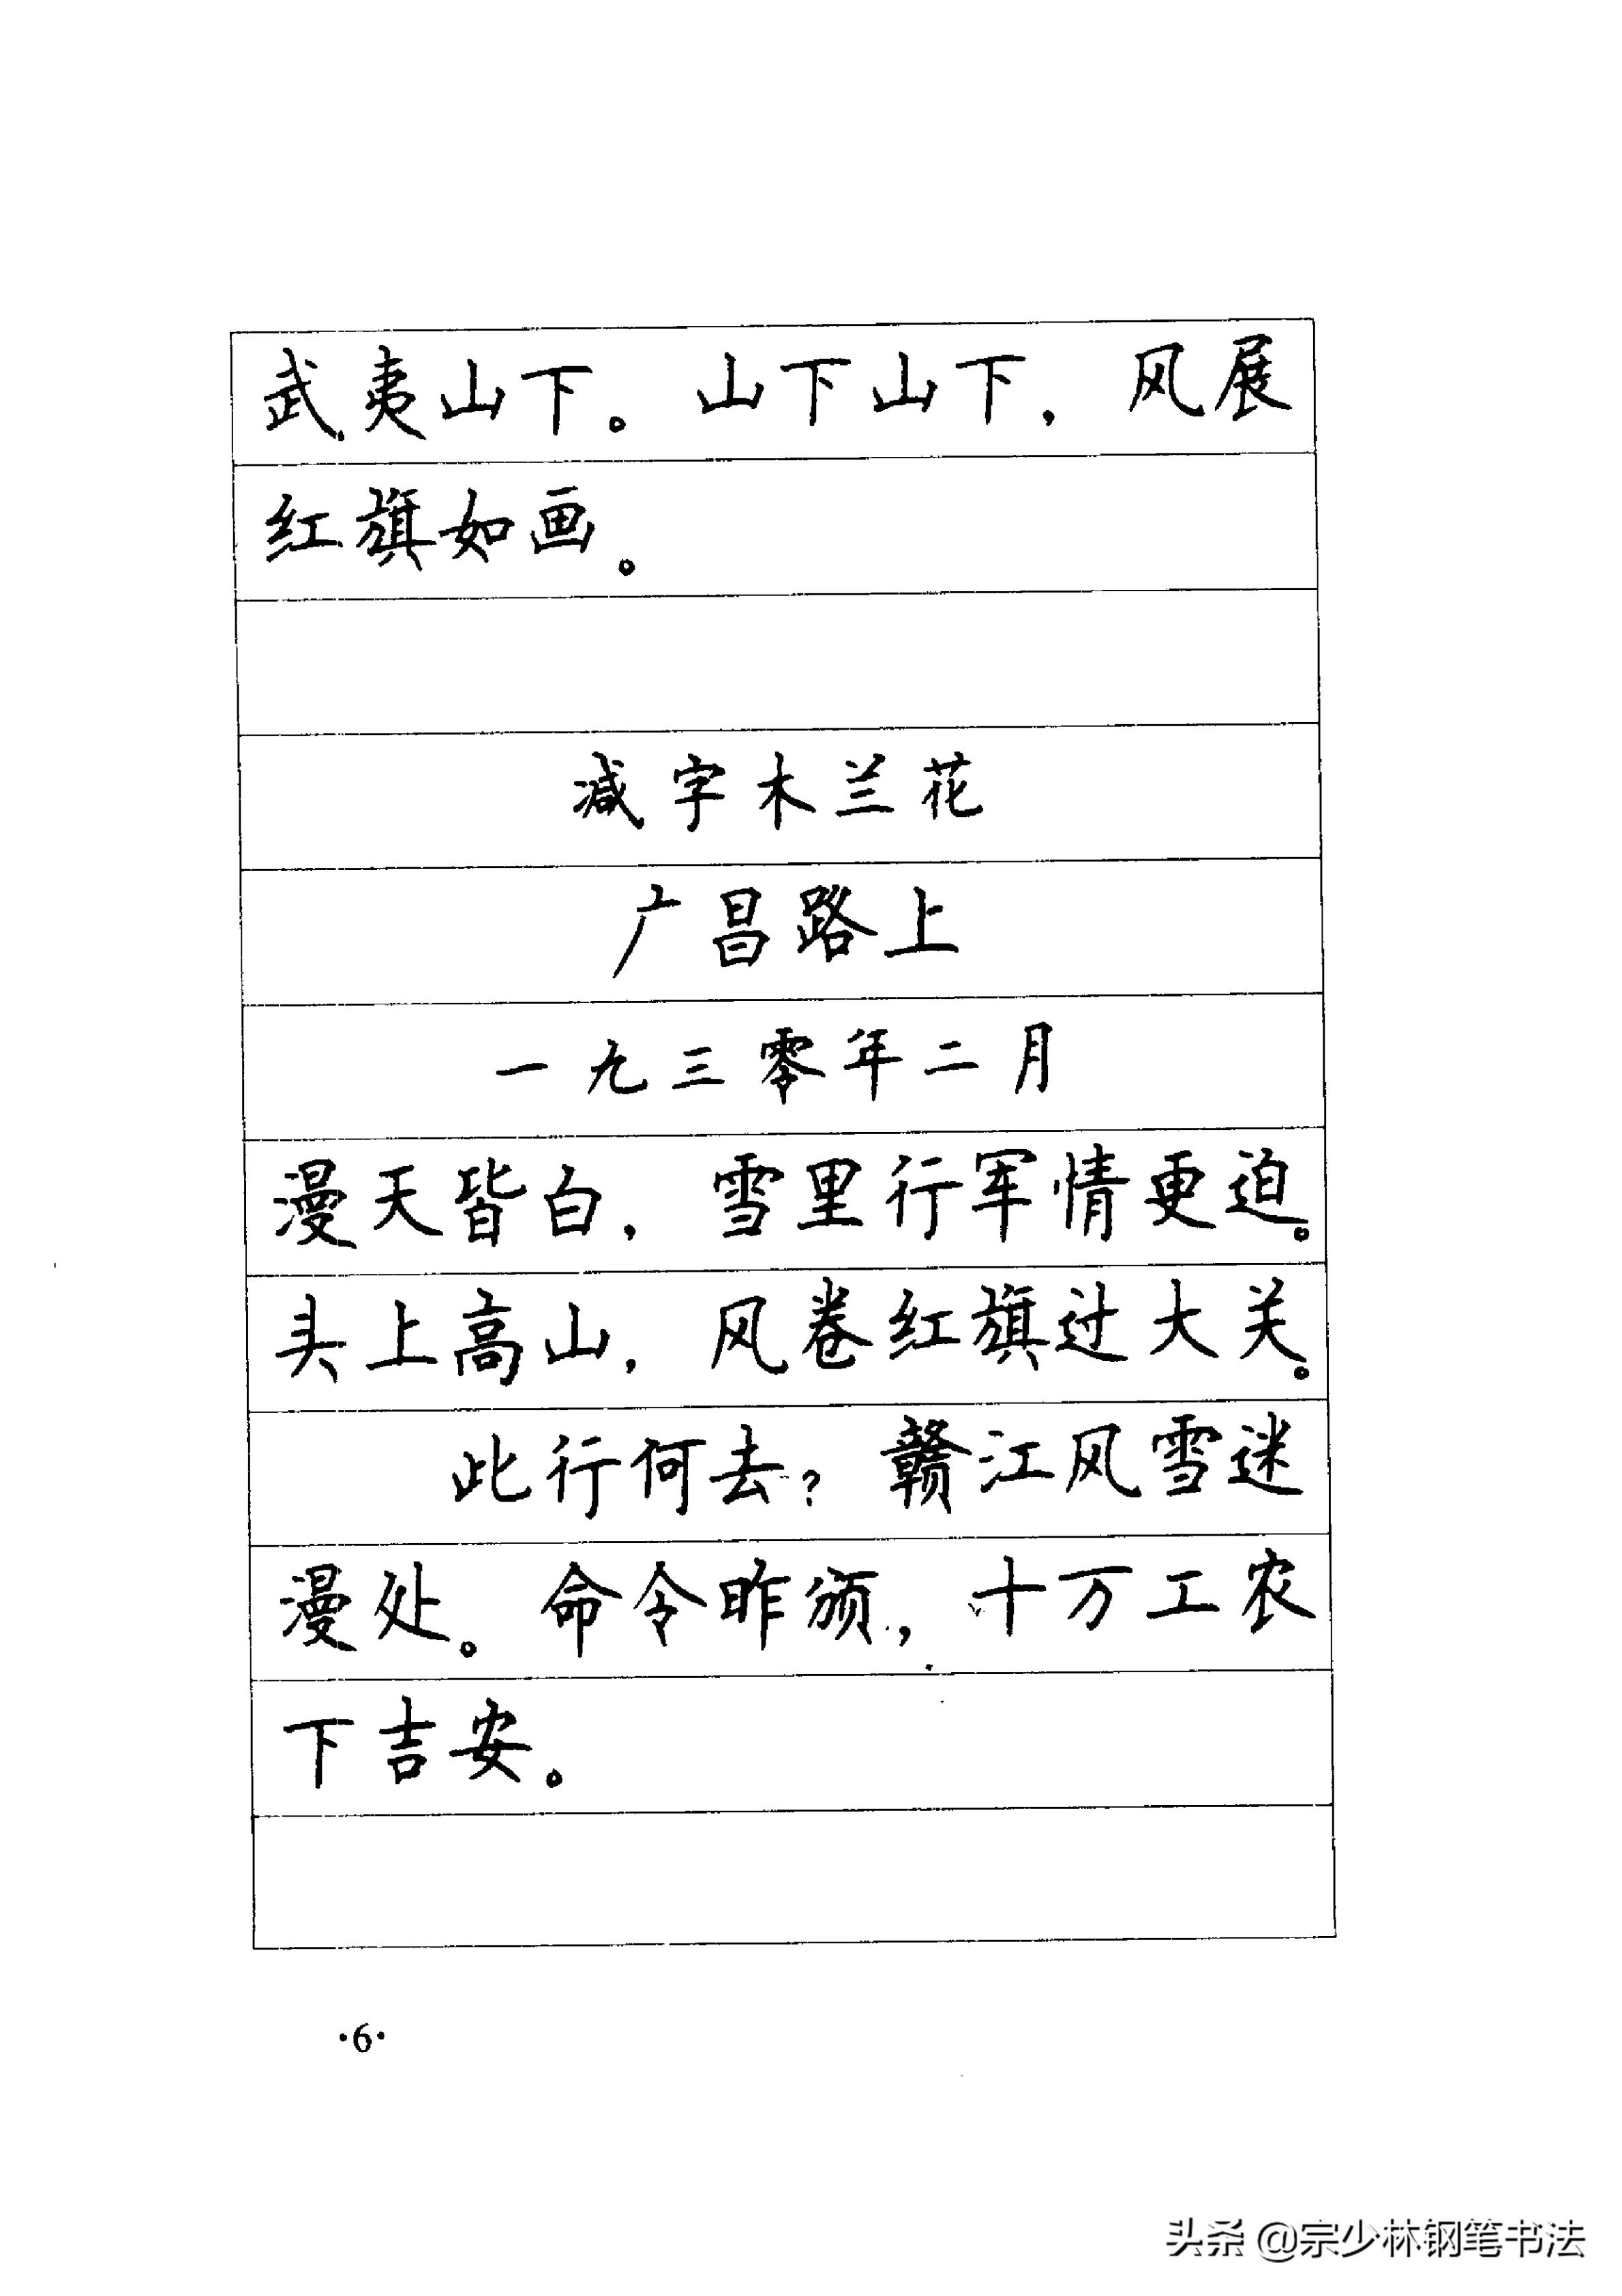 武夷山下。山下山下，风展
红旗如画。
减字木兰花
广昌路上
一九三零年二月
漫天皆白，雪里行军情更迫。
头上高山，风卷红旗过大关。
此行何去？赣江风雪迷
漫处。命令昨颁，十万工农
下吉安。
·6·
头条 @宗少林钢笔书法